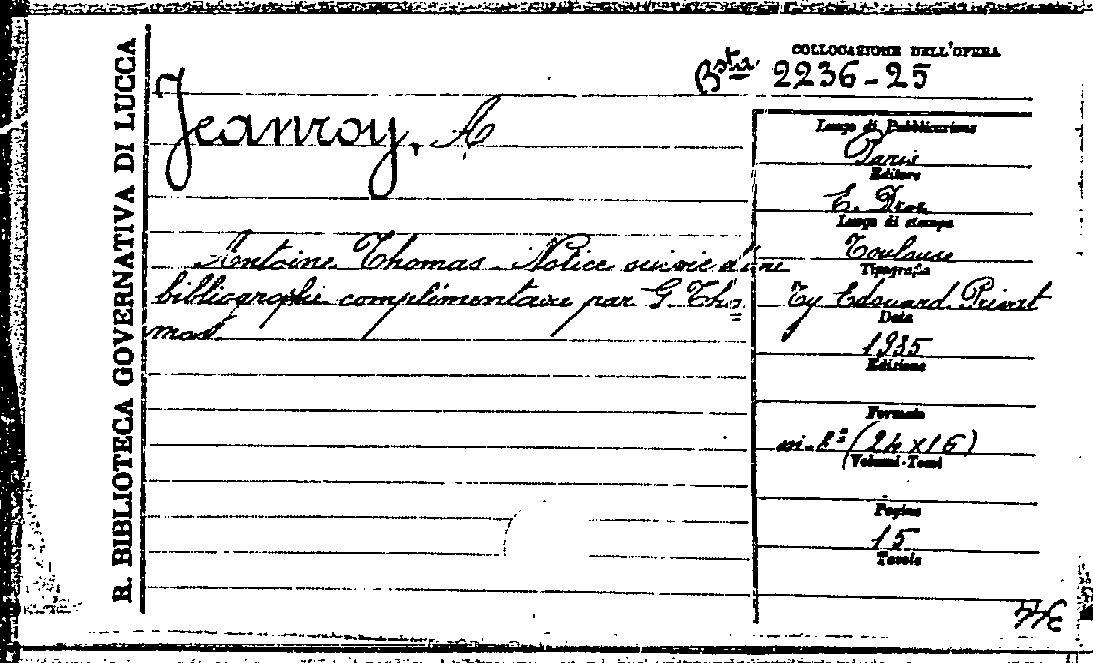 R. BIBLIOTECA GOVERNATIVA DI LUCCA
COLLOCAZIONE DELL'OPERA
Bsta 2236-25
Jeanroy, A
Antoine Thomas - Notice suivie d'une
bibliographie complimentaire par G. Tho=
mas.
Luogo di Pubblicazione
Paris
Editore
E. Droz
Luogo di stampa
Toulouse
Tipografia
Ty Edouard Privat
Data
1935
Edizione
Formato
in-8º (24 x 16)
Volumi-Tomi
Pagine
15
Tavole